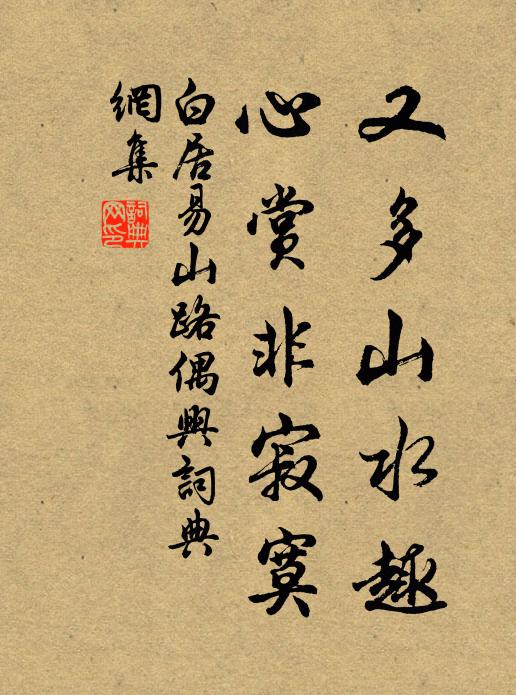 又多山水趣
心賞非寂寞
白居易山路偶興詞典
網集
詞典
网印